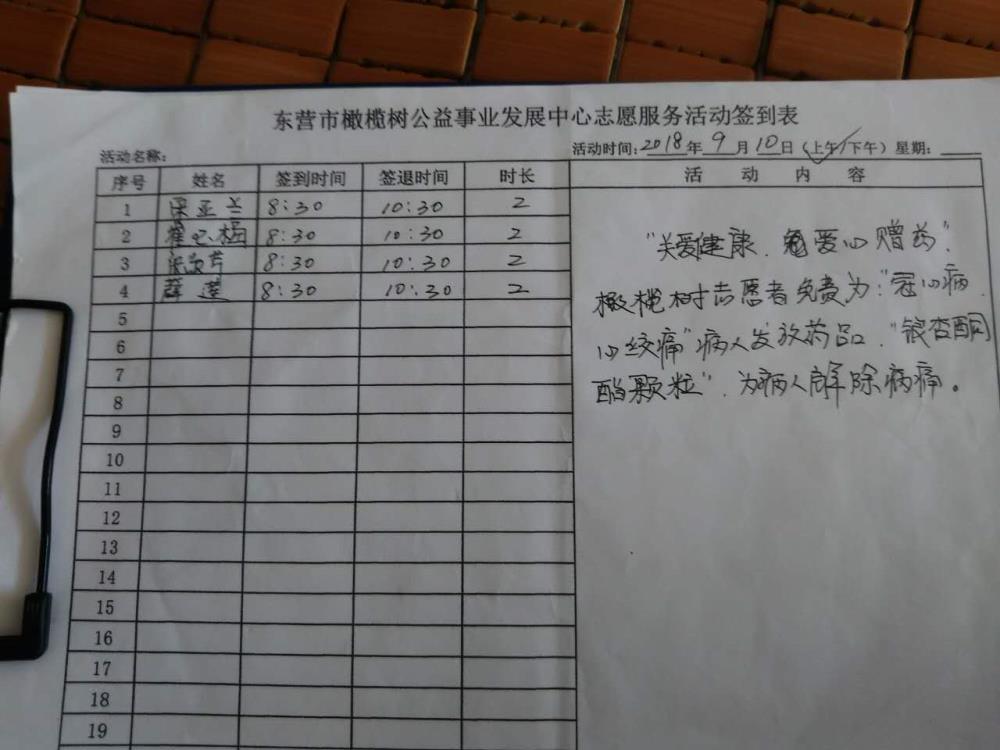 东营市橄榄树公益事业发展中心志愿服务活动签到表
活动名称: 活动时间:2018年9月10日(上午/下午) 星期:
序号 姓名 签到时间 签退时间 时长 活动内容
1 梁亚兰 8:30 10:30 2
2 8:30 10:30 2
3 8:30 10:30 2
4 薛莲 8:30 10:30 2
5
6
7
8
9
10
11
12
13
14
15
16
17
18
19
"关爱健康.爱心赠药".
橄榄树志愿者免费为:"冠心病.
心绞痛"病人发放药品."银杏酮
酯颗粒".为病人解除病痛。